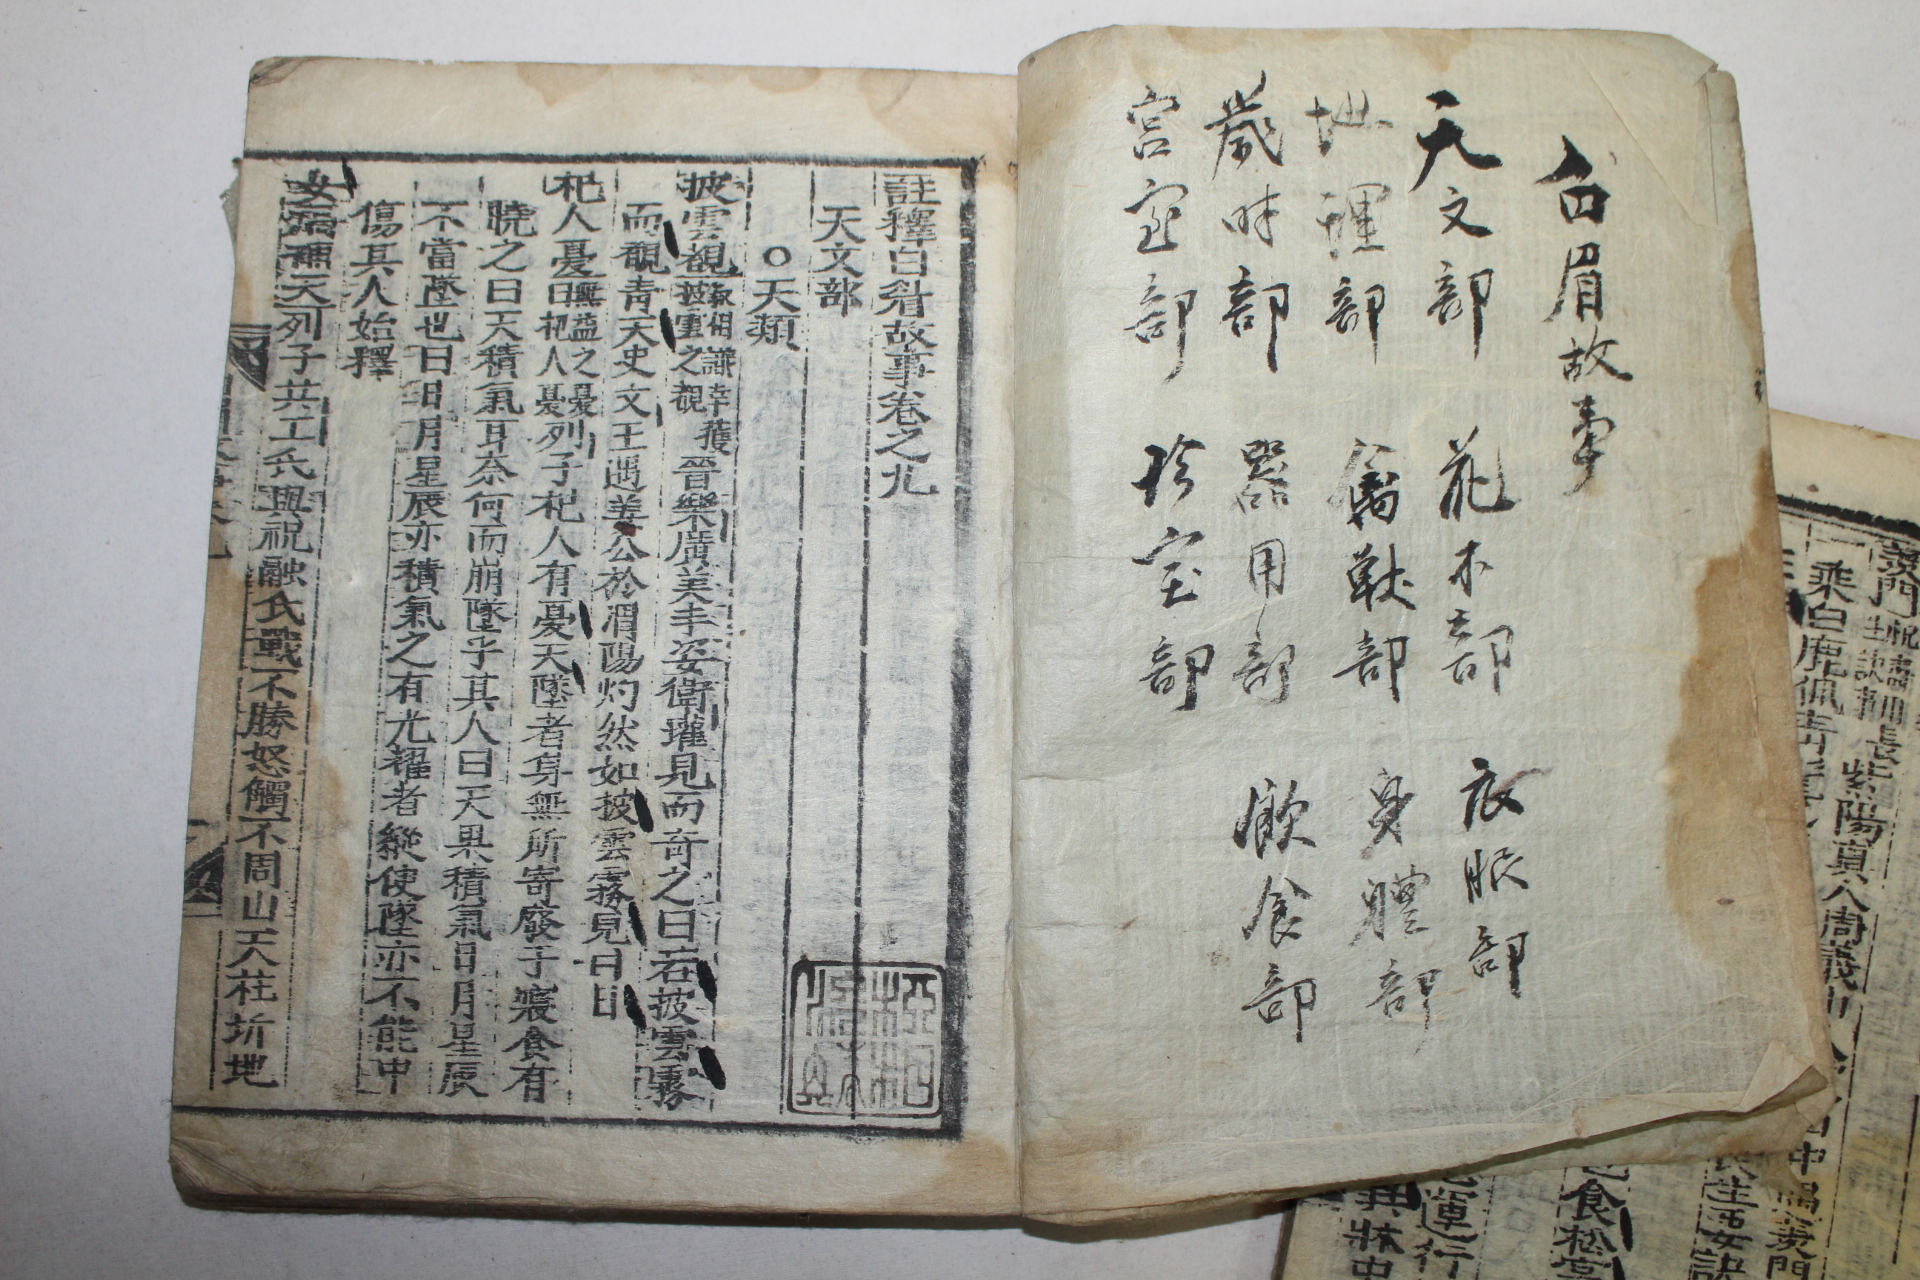 白眉故事
天文部 花木部 衣服部
地理部 禽獣部 身體部
歲時部 器用部 飲食部
宮室部 珍宝部
註釋白眉故事卷之九
天文部
○天類
披雲覩叙相謙幸獲披雲之覩晉樂廣美丰姿衛瓘見而奇之曰若披雲霧
而覩靑天史文王遇姜公於渭陽灼然如披雲霧見白日
杞人憂曰無益之憂杞人憂列子杞人有憂天墜者身無所寄廢于寢食有
曉之曰天積氣耳奈何而崩墜乎其人曰天果積氣日月星辰
不當墜也曰日月星辰亦積氣之有光耀者縱使墜亦不能中
傷其人始釋
女媧補天列子共工氏與祝融氏戰不勝怒觸不周山天柱折地
羨門
一乘白鹿佩
紫陽真人周義山